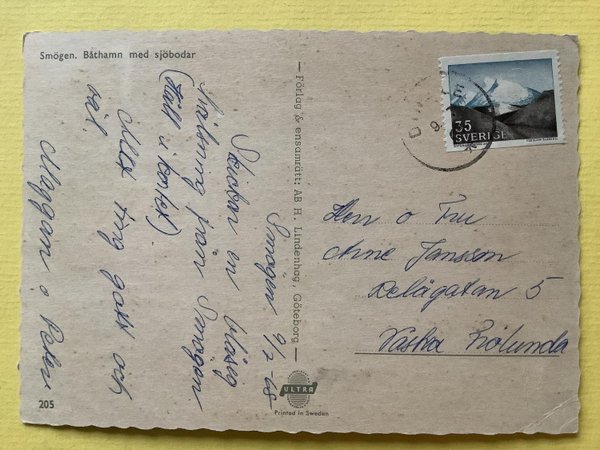 Smögen. Båthamn med sjöbodar
Smögen 9/7-68
Skickar en blåsig
hälsning från Smögen
(Håll i kortet)
gott och
väl.
Maggan o Peter
205
— Förlag & ensamrätt: AB H. Lindenhag, Göteborg —
ULTRA
Printed in Sweden
35
SVERIGE
Herr o Fru
Arne Jansson
Delågatan 5
Västra Frölunda